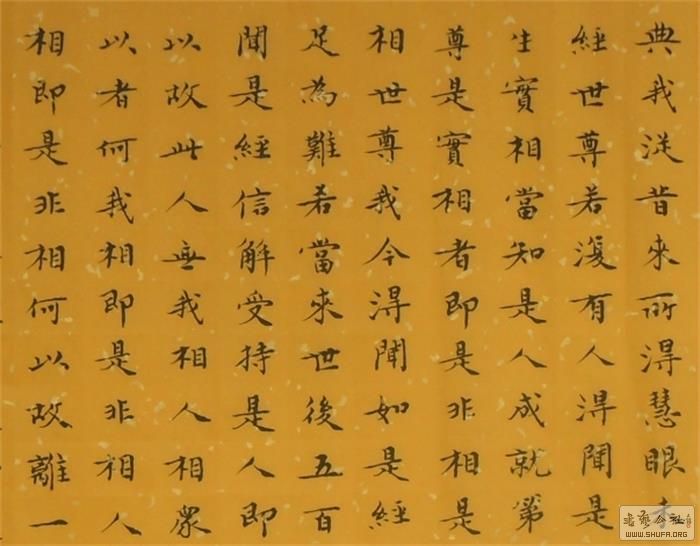 典我從昔來所得慧眼未
經世尊若復有人得聞是
生實相當知是人成就第
尊是實相者即是非相是
相世尊我今得聞如是經
足為難若當來世後五百
聞是經信解受持是人即
以故此人無我相人相眾
以者何我相即是非相人
相即是非相何以故離一
WWW.SHUFA.ORG